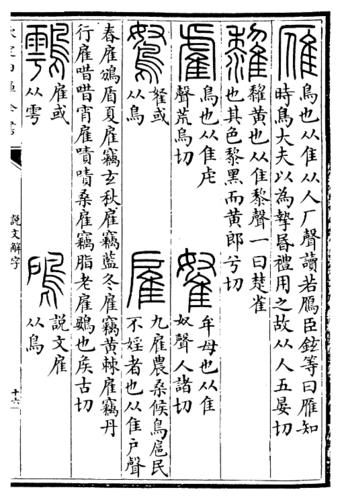 雁
鳥也从隹从人厂聲讀若鴈臣鉉等曰雁知
時鳥大夫以為摯昬禮用之故从人五晏切
黃也从隹黎聲一曰楚雀
也其色黎黑而黃郎兮切
鳥也从隹虍
聲荒烏切
牟母也从隹
奴聲人諸切
鴽
或
从鳥
雇
九雇農桑候鳥扈民
不婬者也从隹户聲
春雇鳻盾夏雇竊玄秋雇竊藍冬雇竊黃棘雇竊丹
行雇唶唶宵雇嘖嘖桑雇竊脂老雇鷃也矦古切
雇或
从雩
鳸
說文雇
从鳥
說文解字
十六